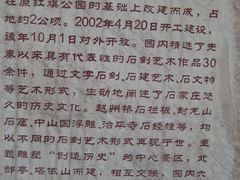 在原红旗公园的基础上改建而成，占
地约2公顷。2002年4月20日开工建设，
该年10月1日对外开放。园内精选了先
秦以来具有代表性的石刻艺术作品30
余件，通过文字石刻、石建艺术、石文物
等艺术形式，生动地阐述了石家庄悠
久的历史文化。赵州桥石栏板、封龙山
石窟、中山国浮雕、治平寺石经幢等，均
以不同的石刻艺术形式再现于世。主
题雕塑“创造历史”列中心景区，北
部亭、塔依山而建，相互交映，园内六